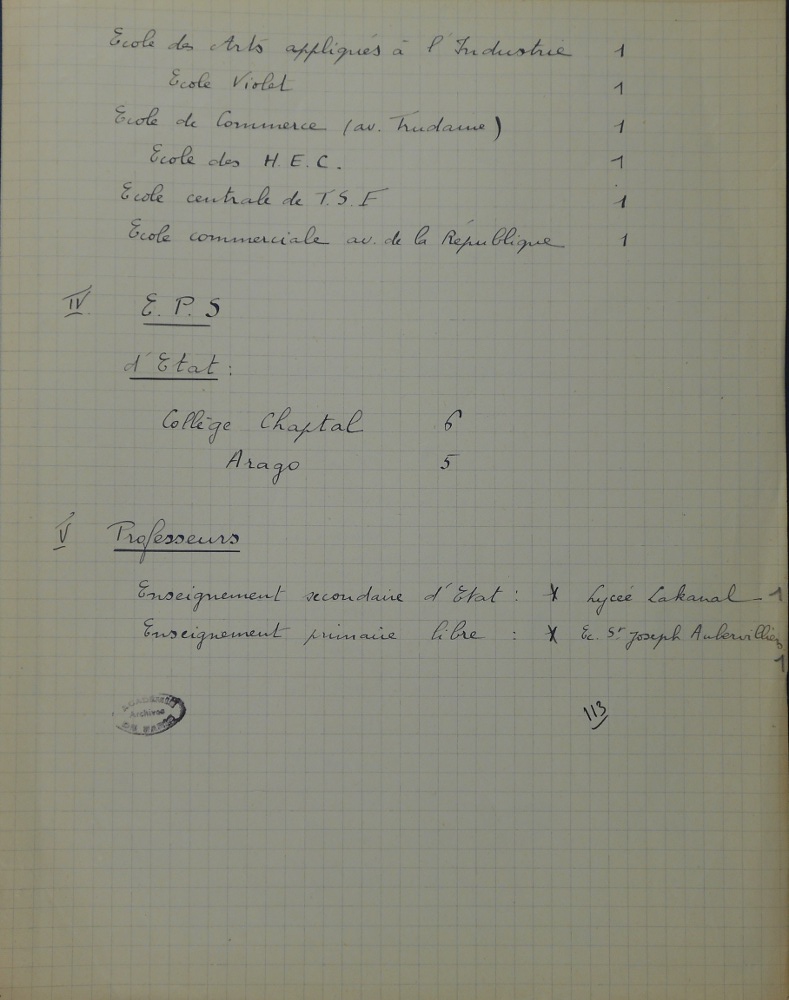 Ecole des Arts appliqués à l'Industrie 1
Ecole Violet 1
Ecole de Commerce (av. Trudaine) 1
Ecole des H.E.C. 1
Ecole centrale de T.S.F 1
Ecole commerciale av. de la République 1
IV. E.P.S
d'Etat :
Collège Chaptal 6
Arago 5
V Professeurs
Enseignement secondaire d'Etat : x Lycée Lakanal - 1
Enseignement primaire libre : x Ec. St Joseph Aubervilliers
1
Archives
DE PARIS
113